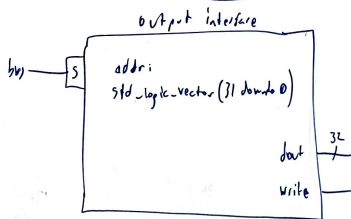 output interface
bus
S
addr:
std_logic_vector(31 downto 0)
32
dout
write